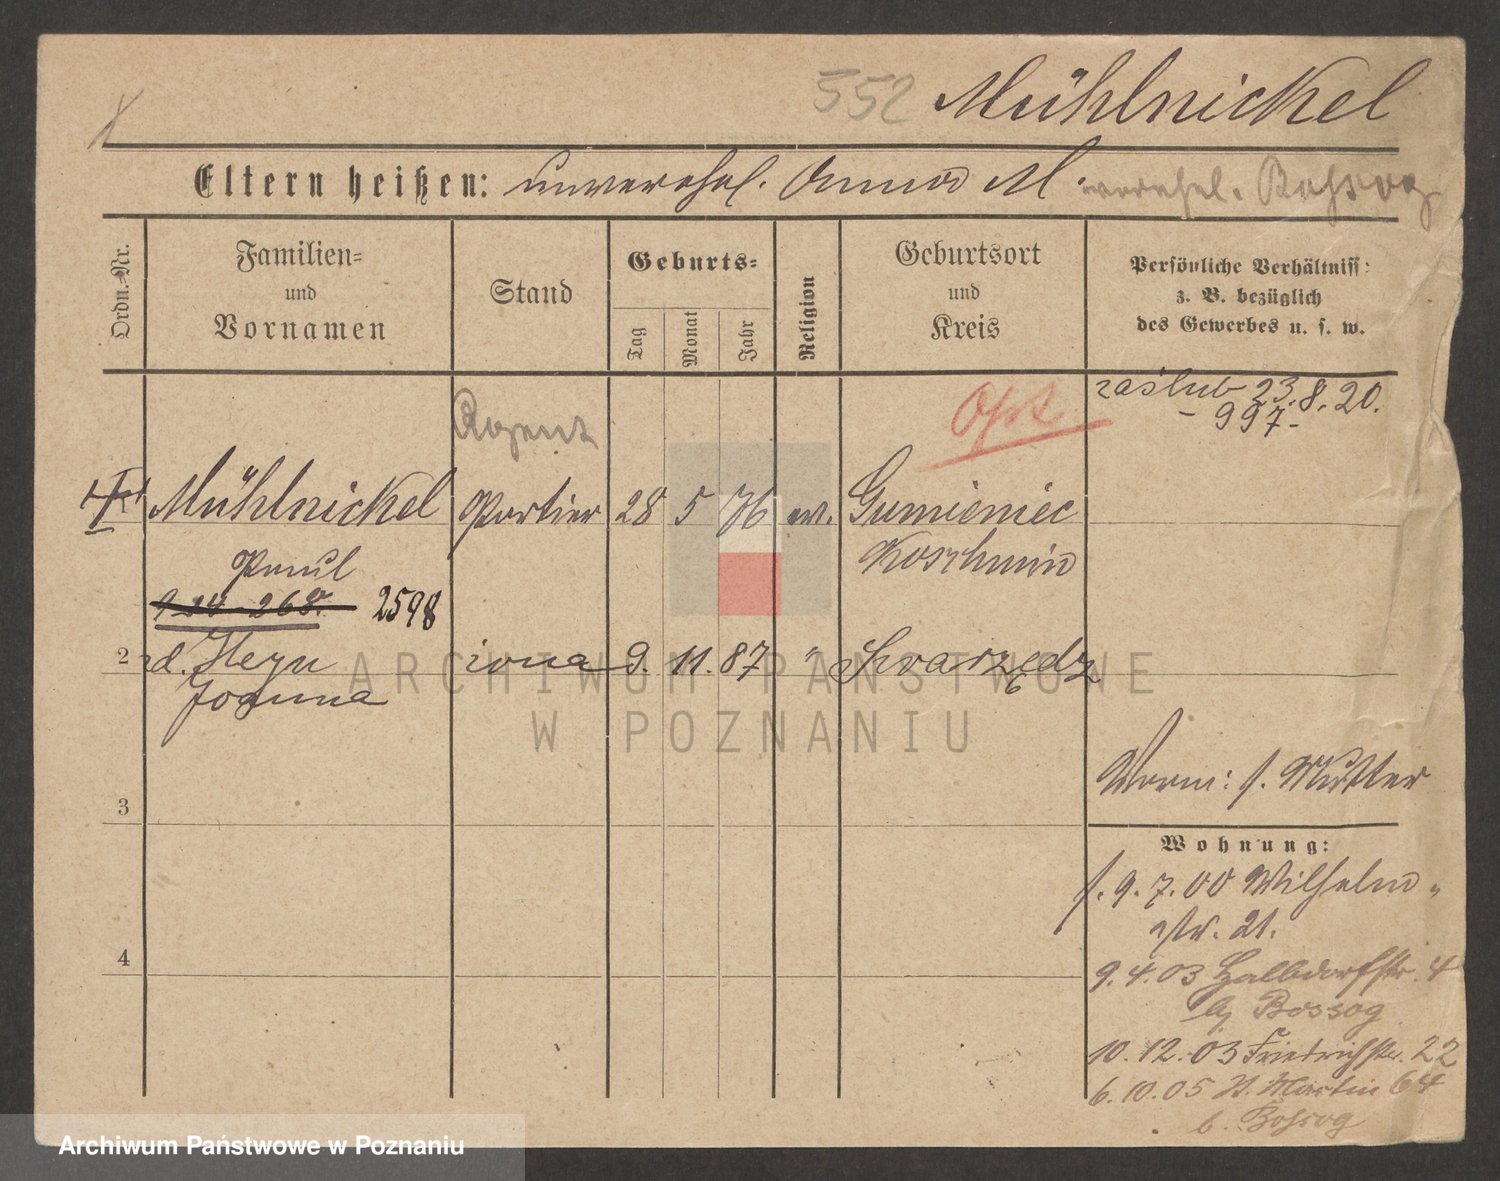 552 Mühlnickel
Eltern heißen: unverehel. Anna M. verehel. Bossog
Ordn.-Nr.
Familien=
und
Vornamen
Stand
Geburts=
Tag
Monat
Jahr
Religion
Geburtsort
und
Kreis
Persönliche Verhältniss:
z. B. bezüglich
des Gewerbes u. s. w.
zaślub 23.8.20.
- 997 -
Agent
Opt
1 Mühlnickel Portier 28 5 76 ev. Gumieniec
Paul Koschmin
2598
2 zd. Heyn żona 9. 11. 87 " Swarzędz
Joanna
3
Vorm: s. Mutter
Wohnung:
s. 9.7.00 Wilhelm-
str. 21.
4
9.4.03 Halbdorfstr. 4
bj Bossog
10.12.03 Friedrichstr. 22
6.10.05 St. Martin 64
b. Bossog
ARCHIWUM PAŃSTWOWE
W POZNANIU
Archiwum Państwowe w Poznaniu